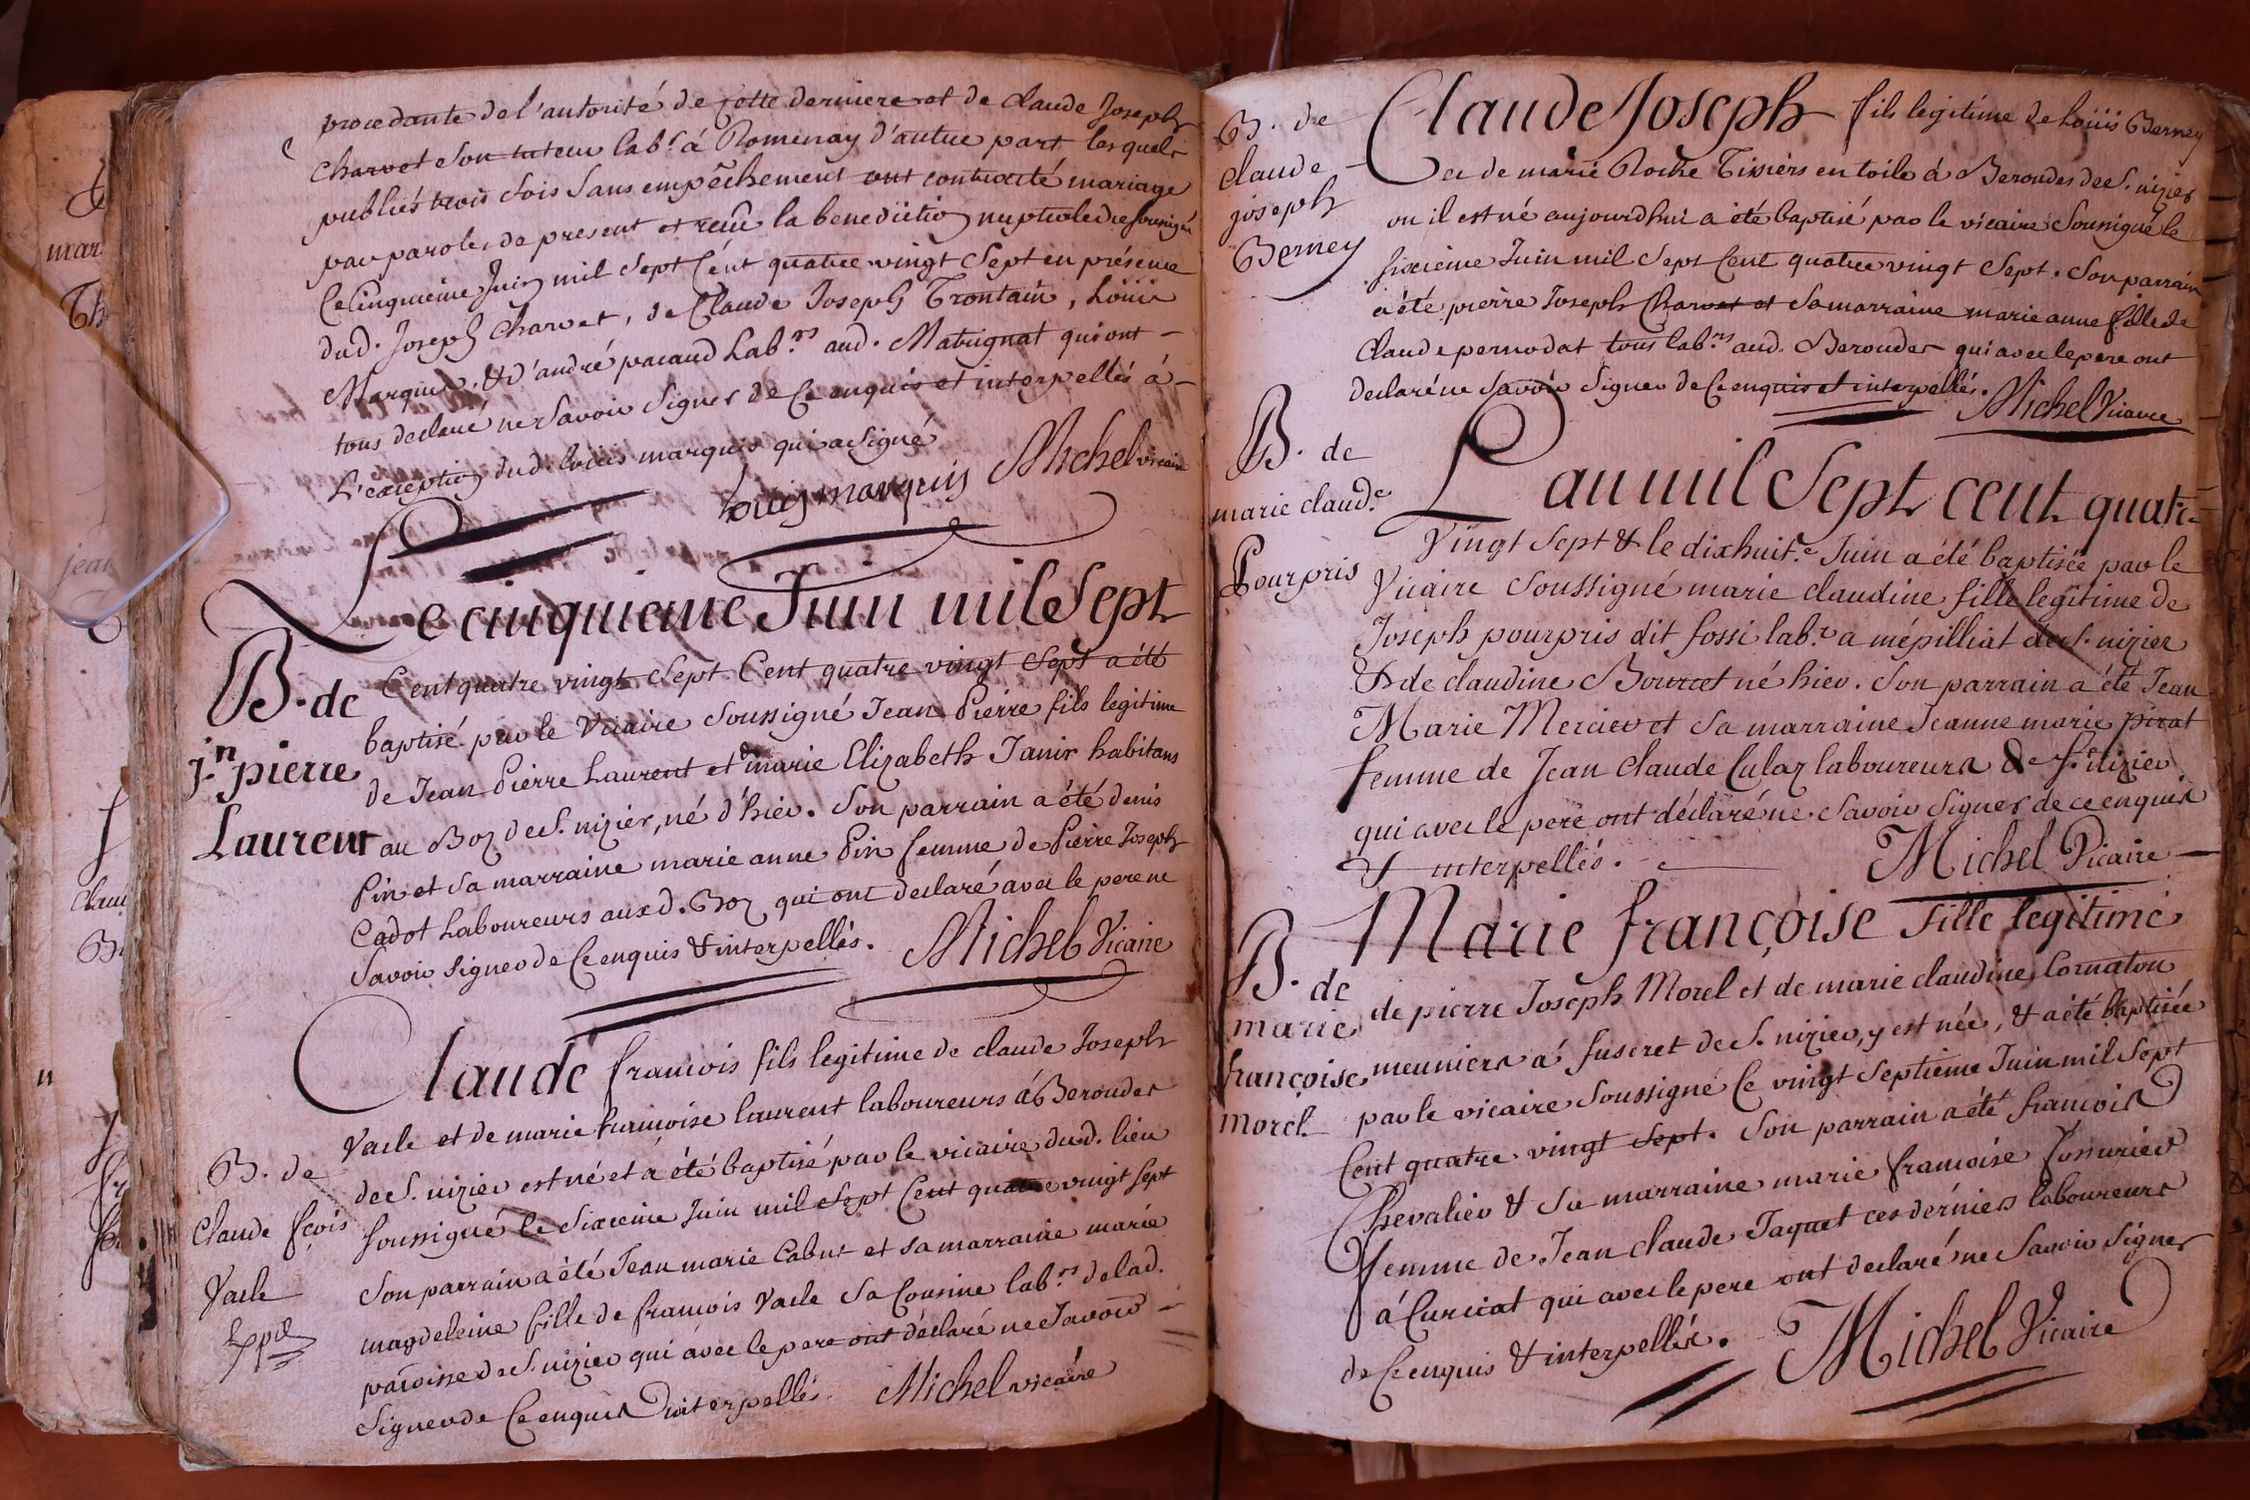 procedante de l'autorité de cette derniere et de claude Joseph
charvet son tuteur lab.r á Romenay d'autre part lesquels
publiés trois fois sans empêchement ont contracté mariage
par paroles de present et reçu la benediction nuptiale du soussigné
Le Cinquieme Juin mil sept Cent quatre vingt Sept en présence
dud. Joseph Charvet, de Claude Joseph Trontain, Loüis
Marquis, & d'andré pacaud Lab.rs aud. Matrignat qui ont
tous declaré ne savoir signer de Ce enquis et interpellés á
L'exception dud. loüis marquis qui a signé
Loüis marquis Michel vicaire
Le cinquieme Juin mil Sept
B. de
Cent quatre vingt Sept Cent quatre vingt Sept a été
baptisé par le Vicaire Soussigné Jean Piérre fils legitime
j.n pierre
de Jean Pierre Laurent et de marie Elizabeth Janin habitans
Laurent
au Boz de S. nizier, né d'hier. Son parrain a été denis
Pin et sa marraine marie anne Pin femme de Pierre Joseph
Cadot Laboureurs aux d. Boz qui ont declaré avec le pere ne
Savoir signer de Ce enquis & interpellés. Michel Vicaire
Claude francois fils legitime de claude Joseph
Vacle et de marie francoise laurent laboureurs á Beroudes
B. de
de S. nizier est né et á été baptisé par le vicaire dud. lieu
Claude fçois
soussigné le Sixieme Juin mil Sept Cent quatre vingt sept
Vacle
Son parrain a été Jean marie Cabut et sa marraine marie
magdeleine fille de francois Vacle sa Cousine lab.rs de lad.
paroisse de S. nizier qui avec le pere ont déclaré ne Savoir
Signer de Ce enquis & interpellés. Michel vicaire
B. de
claude
joseph
Berney
Claude Joseph fils legitime de Loüis Berney
et de marie Roche Tissiers en toile á Beroudes de S. nizier
ou il est né aujourdhui a été baptisé par le vicaire Soussigné le
sixieme Juin mil Sept Cent quatre vingt Sept. Son parrain
a été pierre Joseph Charvet et Sa marraine marie anne fille de
Claude pernodat tous lab.rs aud. Beroudes qui avec le pere ont
declaré ne Savoir Signer de Ce enquis et interpellés. Michel Vicaire
B. de
marie claud.e
Pourpris
L'an mil Sept cent quatre
Vingt Sept & le dixhuit.e Juin a été baptisée par le
Vicaire Soussigné marie claudine fille legitime de
Joseph pourpris dit fossi lab.r a mépilliat de S. nizier
& de claudine Bourcet né hier. Son parrain a été Jean
Marie Mercier et Sa marraine Jeanne marie pirat
femme de Jean Claude Culaz laboureurs de S.t nizier
qui avec le pere ont déclaré ne Savoir Signer de ce enquis
& interpellés. Michel Vicaire
B. de
marie
françoise
Morel
Marie françoise fille legitime
de pierre Joseph Morel et de marie claudine Cornaton
meuniers á fuseret de S. nizier, y est née, & a été baptisée
par le vicaire Soussigné Ce vingt Septieme Juin mil Sept
Cent quatre vingt Sept. Son parrain a été francois
Chevalier & Sa marraine marie francoise fossurier
femme de Jean claude Jaquet ces dérniers laboureurs
á Curciat qui avec le pere ont declaré ne Savoir Signer
de Ce enquis & interpellés. Michel Vicaire